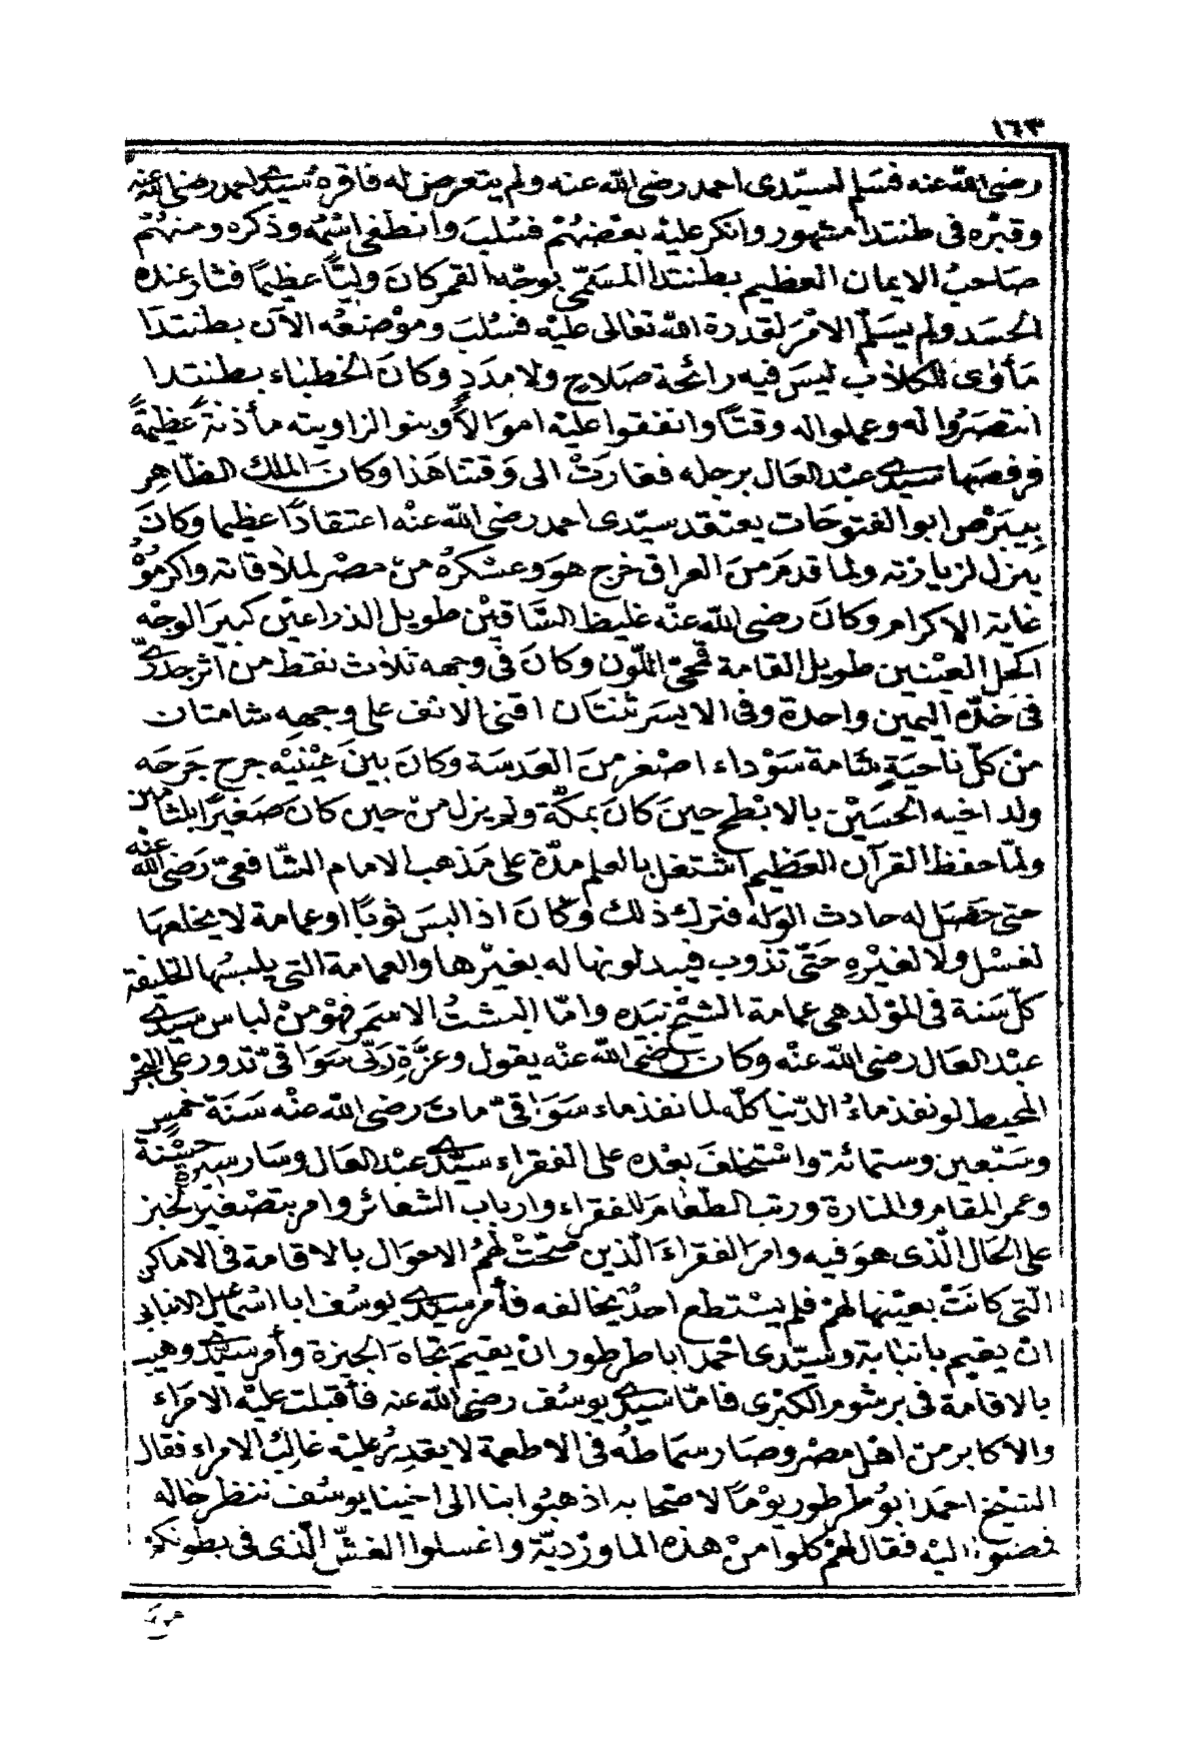 ١٦٣
رضى الله عنه فسلم لسيّدى احمد رضى الله عنه ولم يتعرض له فاقره سيدى احمد رضى الله عنه
وقبْره فى طنتدا مشهور وانكر عليْه بعْضهُمْ فسُلبَ وانطفى اسْمُه وذكره ومنهُمْ
صَاحبُ الايمان العظيم بطنتدا المسَمّى بوجْه القمر كانَ وليّاً عظيمًا فثار عنده
الحسَد ولم يسَلّم الامْرَ لقدرة الله تعالى عليْه فسُلبَ وموْضعُه الآن بطنتدَا
مَأوى للكلاب ليسَ فيه رائحة صَلاح ولا مدَد وكانَ الخطباء بطنتدا
انتصَرُوا له وعملوا له وقتًا وانفقوا عليْه اموَالاً وبنوا لزاويته مأذنةً عظيمةً
فرفصَها سيدى عبْد العَال برجله فغارَتْ الى وَقتنا هَذا وكانَ الملك الظاهِر
بِيبَرْص ابو الفتوحَات يعتقد سيّدى احمد رضى الله عنْه اعتقادًا عظيما وكانَ
ينزل لزيارته ولما قدمَ منَ العراق خرج هوَ وعسْكرُه منْ مصْر لملاقاته واكرمُوْهُ
غاية الاكرام وكانَ رضى الله عنْه غليظ السَّاقيْن طويل الذراعيْن كبيرَ الوجْه
اكحل العيْنين طويل القامة قمحىّ اللّون وكانَ فى وجهه ثلاث نقط من اثر جدرى
فى خدّه اليمين واحدة وفى الايسَر ثنتَان اقنى الانف على وجهِه شامتان
منْ كلّ ناحيَةٍ شامة سَوْداء اصْغر منَ العَدسَة وكانَ بينَ عيْنيْه جرح جَرحَه
ولد اخيه الحسَيْن بالابطح حينَ كانَ بمكّة ولم يزل منْ حين كانَ صَغيرًا بلثامين
ولمّا حفظ القرآن العَظيم اشتغل بالعلم مدّة على مَذهب الامام الشّافعىّ رَضى الله عنه
حتى حَصَل له حادث الوَله فترك ذلك وَكانَ اذا لبسَ ثوبًا او عمامة لا يخلعهَا
لغسْل ولا لغيْرِه حَتّى تذوب فيبدلونها له بغيْرها والعمامة التى يلبسُها الخليفة
كلّ سَنة فى المَوْلد هى عمامة الشيْخ بيَده وامّا البشتُ الاسمَر فهْوَ منْ لباس سيدى
عبْد العَال رضى الله عنْه وكانَ رَضى الله عنْه يقول وعزّةِ رَبّى سَوَاقىّ تدور على البحْر
المحيط لو نفذ ماءُ الدّنيا كلّه لما نفذ ماء سَوَاقىّ ماتَ رضى الله عنْه سَنَة خمس
وسَبْعين وستمائة واسْتخلفَ بعْده على الفقراء سيّدى عبْد العَال وسَار سيرة حسَنة
وعمر المقام والمنارة ورتب الطّعَامَ للفقراء وارباب الشعائر وامر بتصْغير الخبز
على الحَال الّذى هوَ فيه وامرَ الفقراءَ الّذين صَحّتْ لهُمُ الاحوَال بالاقامة فى الاماكن
التى كانَتْ بعيّنها لهُمْ فلم يسْتطع احدٌ يخالفه فأمَرَ سيدى يوسُف ابا اسْماعيل الانبابى
انْ يقيم بانبابة وسيّدى احْمد ابا طرطور انْ يقيمَ تجاهَ الجيزة وأمر سيدى وهيب
بالاقامة فى برشوم الكبْرى فامّا سيدى يوسُف رضى الله عنه فأقبلت عليْه الامَراء
والاكابر منْ اهْل مصْر وصَار سمَاطهُ فى الاطعمة لا يقدِرُ عليْه غالبُ الامراء فقال
الشيْخ احمَد ابوُ طرطور يوْمًا لاصْحابه اذهبُوا بنا الى اخينا يوسُف ننظر حَاله
فمضوْا اليْه فقال لهُمْ كلوا منْ هذه الماوَرْديّة واغسلوا الغشّ الّذى فى بطونكم